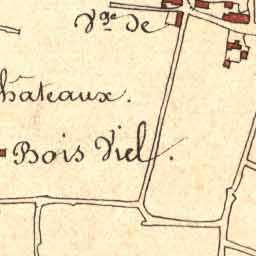 Vge de
hâteaux.
Bois Viel.